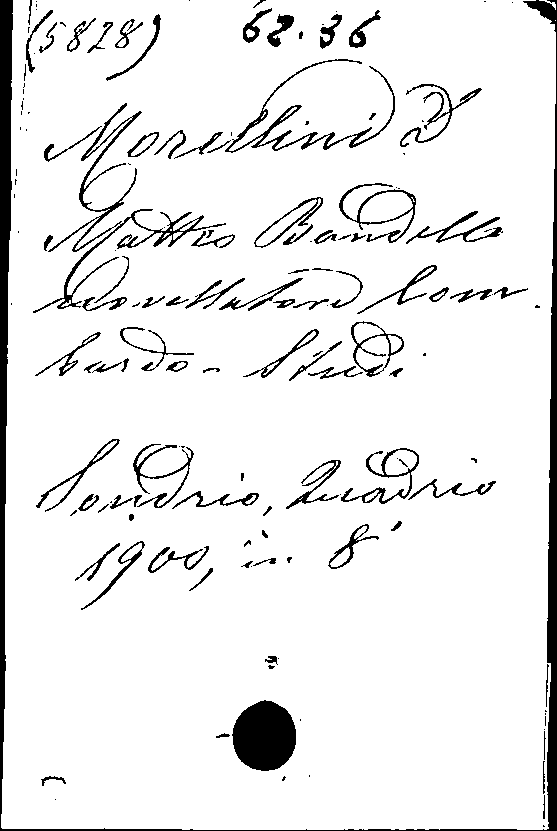 (5828) 62.36
Morellini D
Matteo Bandello
novellatore lom
bardo - Studi
Sondrio, Quadrio
1900, in 8°